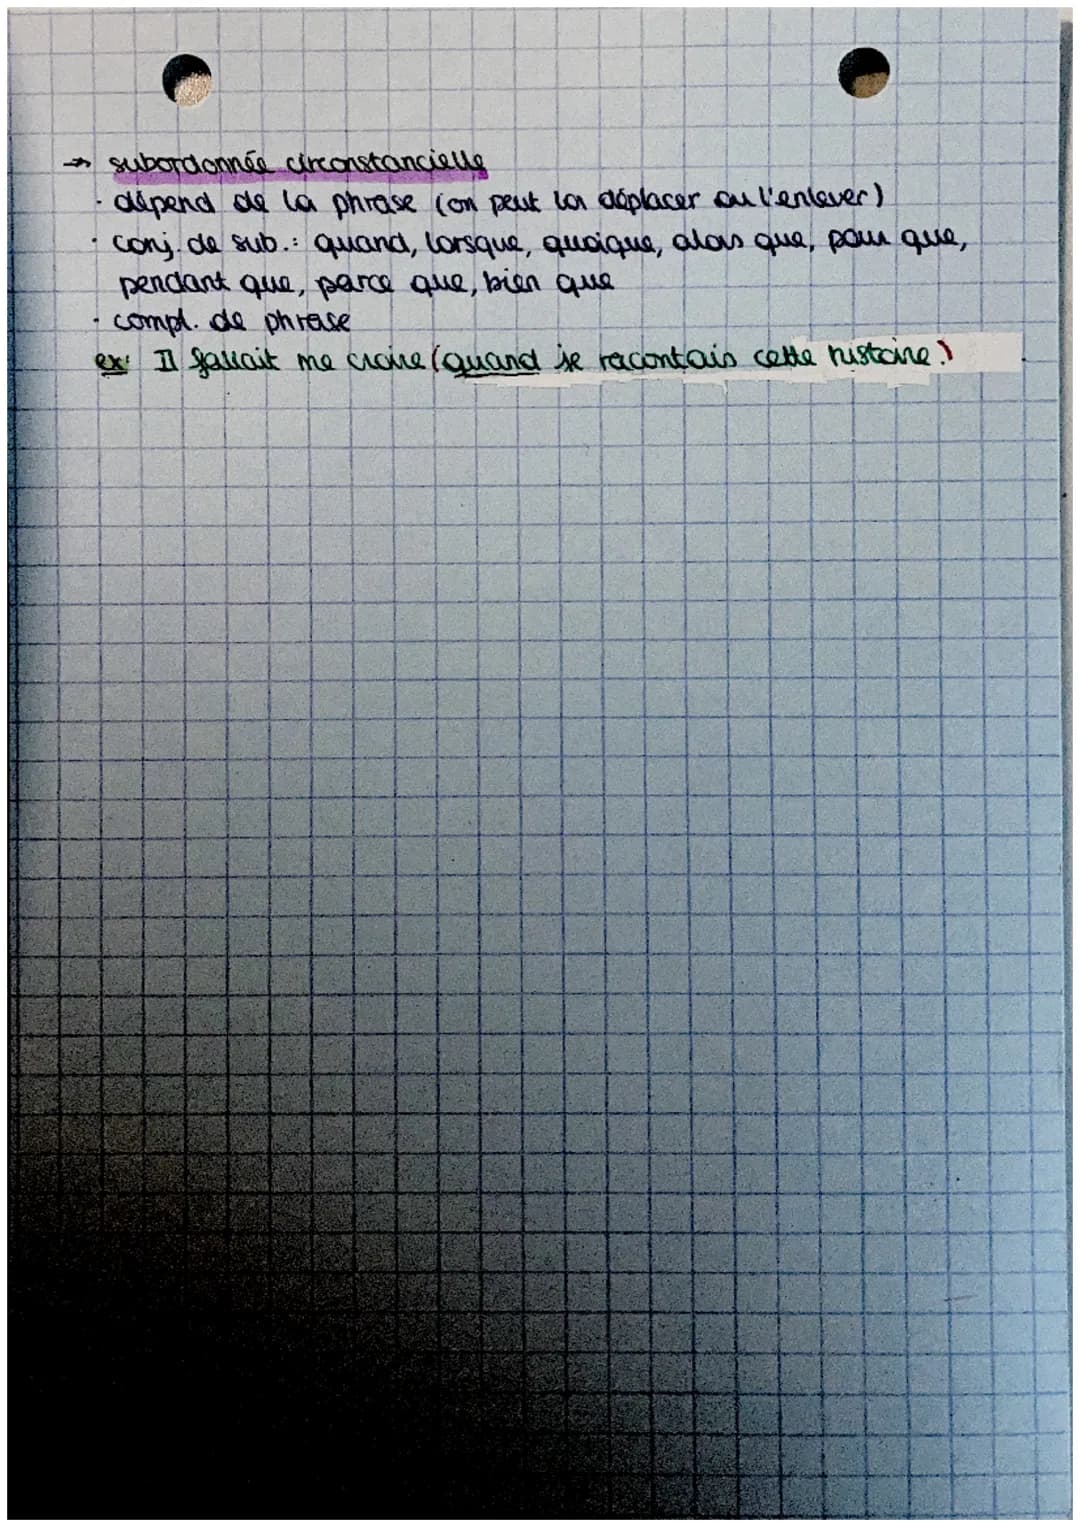 → subordonnée circonstancielle
· dépend de la phrase (on peut la déplacer ou l'enlever)
· conj. de sub.: quand, lorsque, quoique, alors que, pour que,
pendant que, parce que, bien que
· compl. de phrase
ex: Il fallait me croire (quand je racontais cette histoire.)